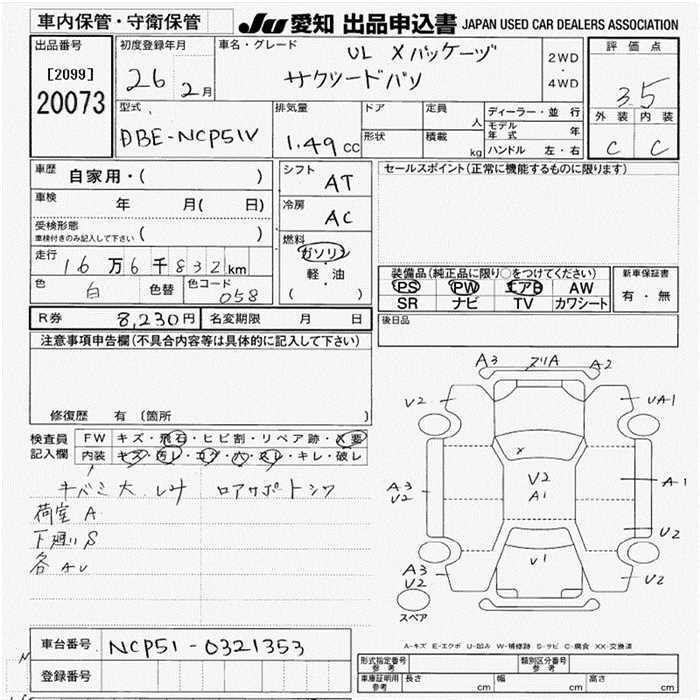 車内保管・守衛保管
JU 愛知 出品申込書 JAPAN USED CAR DEALERS ASSOCIATION
出品番号
[2099]
20073
初度登録年月
26 2月
車名・グレード
UL Xパッケージ
サクシードバン
2WD
・
4WD
評価点
3.5
外装 内装
C C
型式
DBE-NCP51V
排気量
1.49 cc
ドア
形状
定員
人
積載
kg
ディーラー・並行
モデル年式 年
ハンドル 左・右
車歴
自家用・( )
車検
年 月( 日)
受検形態
車検付きのみ記入して下さい ( )
走行
16万6千832km
色 白 色替 色コード 058
シフト
AT
冷房
AC
燃料
ガソリン
軽・油
( )
セールスポイント(正常に機能するものに限ります)
装備品(純正品に限り○をつけてください)
PS PW エアB AW
SR ナビ TV カワシート
新車保証書
有・無
後日品
R券 8,230円 名変期限 月 日
注意事項申告欄(不具合内容等は具体的に記入して下さい)
修復歴 有(箇所 )
検査員
記入欄
FW キズ・飛石・ヒビ割・リペア跡・X要
内装 キズ・汚レ・コゲ・穴・スレ・キレ・破レ
キバミ大 レサ ロアサポートシワ
荷室 A
下廻りS
各AU
A3 ズリA A2
V2 UA1
X
V2
A1
A3
V2
A-1
V2
V1
A3
V2
V2
スペア
A-キズ E-エクボ U-凹み W-補修跡 S-サビ C-腐食 XX-交換済
車台番号 NCP51-0321353
登録番号
型式指定番号
参考
類別区分番号
参考
車庫証明用
参考
長さ cm 幅 cm 高さ cm